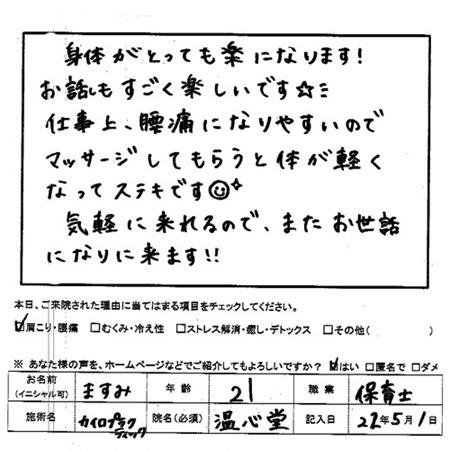 身体がとっても楽になります!
お話しもすごく楽しいです☆ミ
仕事上、腰痛になりやすいので
マッサージしてもらうと体が軽く
なってステキです☺✧
気軽に来れるので、またお世話
になりに来ます!!
本日、ご来院された理由に当てはまる項目をチェックしてください。
☑肩こり・腰痛 □むくみ・冷え性 □ストレス解消・癒し・デトックス □その他( )
※ あなた様の声を、ホームページなどでご紹介してもよろしいですか? ☑はい □匿名で □ダメ
お名前(イニシャル可) ますみ 年齢 21 職業 保育士
施術名 カイロプラクティック 院名(必須) 温心堂 記入日 22年5月1日